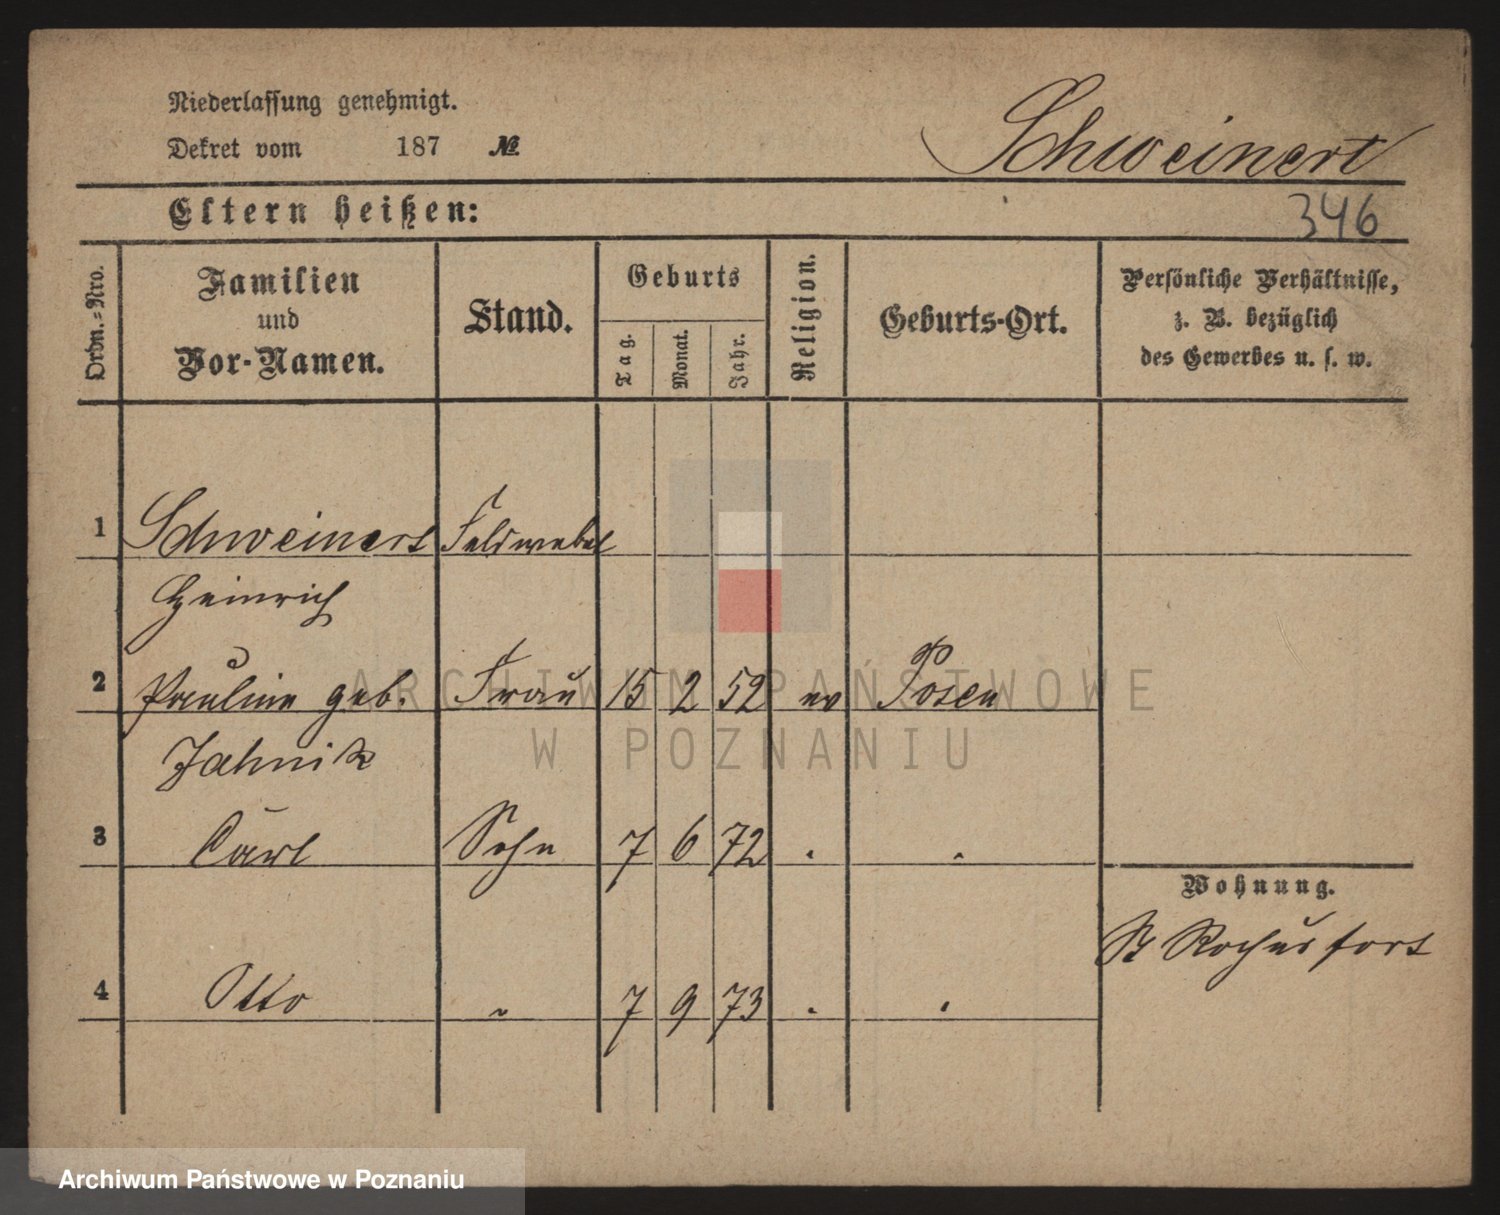 Niederlassung genehmigt.
Dekret vom 187 №
Schweinert
Eltern heißen:
346
Ordn.-Nro.
Familien
und
Vor-Namen.
Stand.
Geburts
Tag.
Monat.
Jahr.
Religion.
Geburts-Ort.
Persönliche Verhältnisse,
z. B. bezüglich
des Gewerbes u. s. w.
1 Schweinert Feldwebel
Heinrich
2 Pauline geb. Frau 15 2 52 ev Posen
Jahnik
3 Carl Sohn 7 6 72 " "
Wohnung.
St Rochus fort
4 Otto " 7 9 73 " "
ARCHIWUM PAŃSTWOWE
W POZNANIU
Archiwum Państwowe w Poznaniu